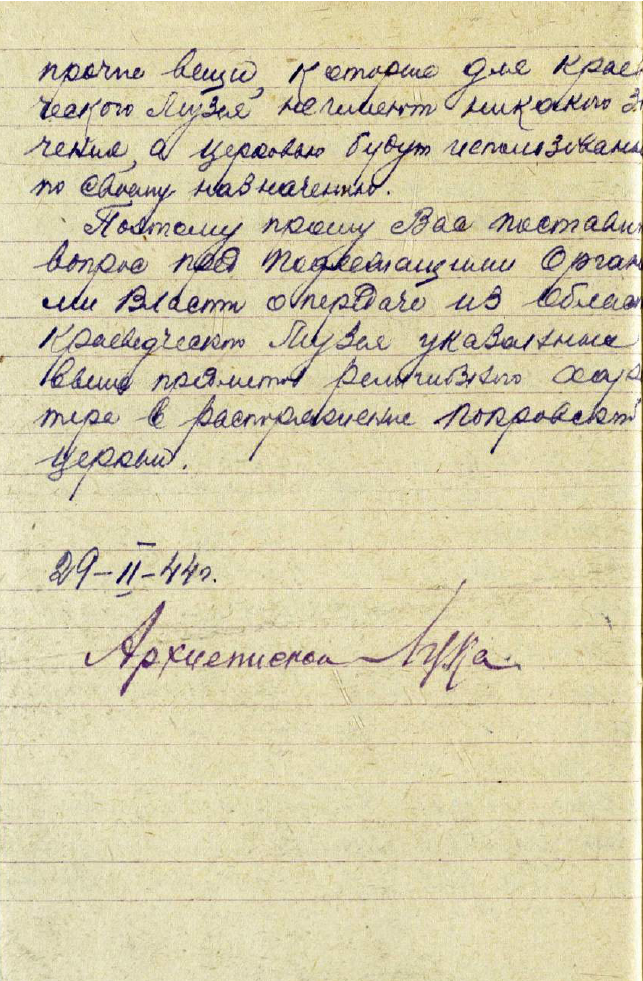 прочие вещи, которые для краев
ческого Музея, неимеют никакого з
чения, а церковью будут использован
по своему назначению.
Поэтому прошу Вас постави
вопрос пред подлежащими Орган
ми Власти о передаче из Облас
Краеведческого Музея указанные
выше предметы религиозного хара
тера в распоряжение Покровской
церкви.
29-II-44г.
Архиепископ Лука.